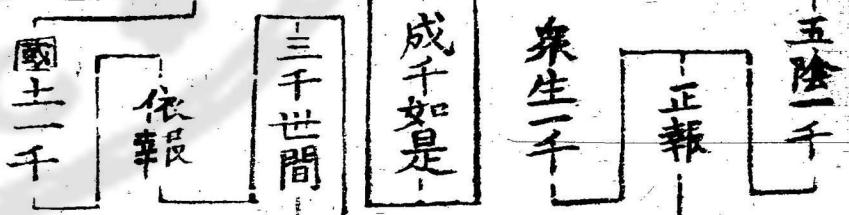 五陰一千
正報
衆生一千
成千如是
三千世間
依報
國土一千